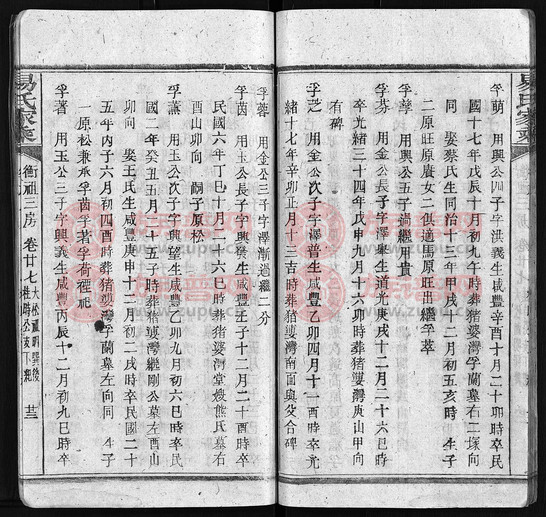 易氏家乘
孚萌　用興公四子字洪義生咸豐辛酉十月二十卯時卒民
國十七年戊辰十月初九午時葬猪婆灣孚蘭墓右二塚向
同　娶蔡氏生同治十三年甲戌十二月初五亥時　生子
二原旺原廣女二俱適馬原旺出繼孚萃
孚萼　用興公五子過繼用貴
孚芬　用金公長子字澤集生道光庚戌十二月二十六巳時
卒光緒三十四年戊申九月十六卯時葬猪婆灣庚山甲向
有碑
孚芝　用金公次子字澤普生咸豐乙卯四月十一酉時卒光
緒十七年辛卯正月十三吉時葬猪婆灣南面與父合碑
孚蓉　用金公三子字澤漸過繼二分
孚茵　用玉公長子字興發生咸豐壬子十二月二十酉時卒
民國六年丁巳十月二十六巳時葬猪婆灣堂嫂熊氏墓右
酉山卯向　嗣子原松
孚薰　用玉公次子字興望生咸豐乙卯九月初六巳時卒民
國二年癸丑五月十五子時葬猪婆灣繼剛公墓左酉山
卯向　娶王氏生咸豐庚申十二月初二戌時卒民國二十
五年丙子六月初四酉時葬猪婆灣孚蘭墓左向同　生子
一原松兼承孚茵孚著孚荷禋祀
孚著　用玉公三子字興義生咸豐丙辰十二月初九巳時卒
易氏家乘
衡祖三房
卷廿七